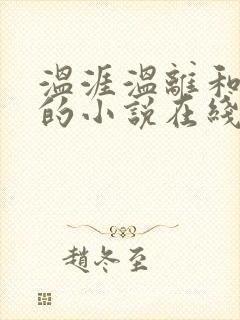 溫涯溫離和
的小說在綫
趙冬至